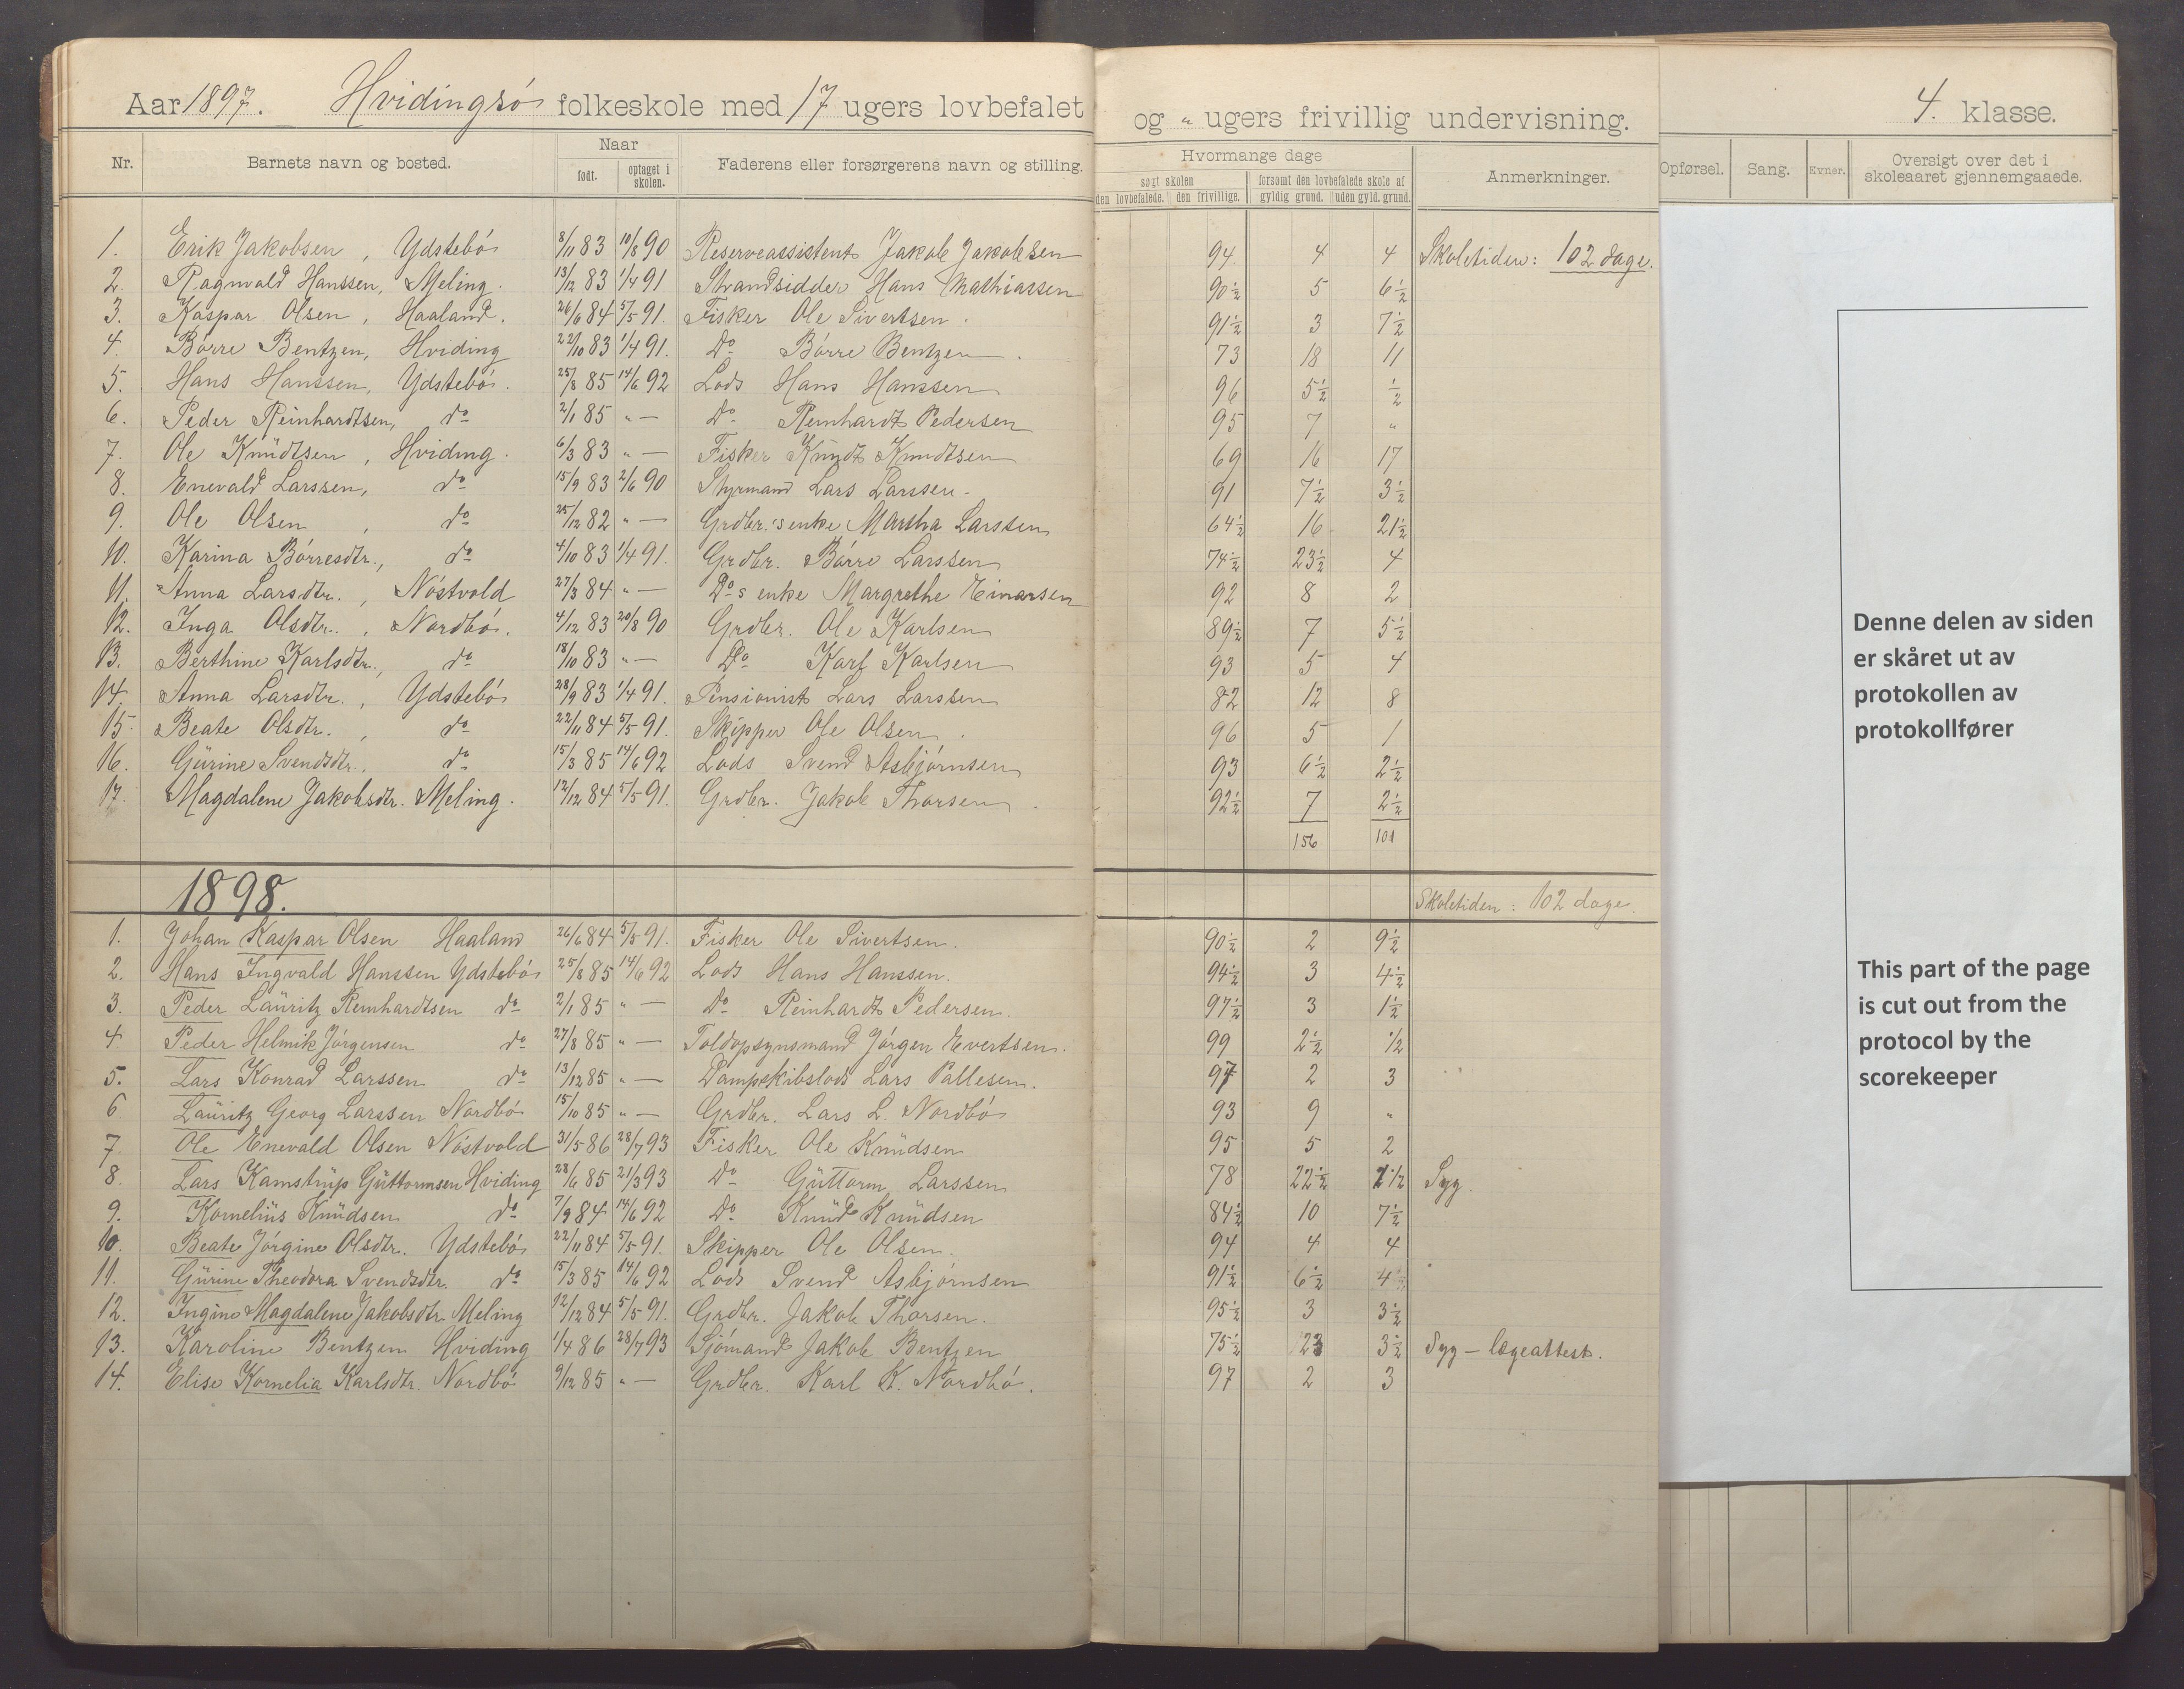 Aar 1897. Hvidingsö folkeskole med 17 ugers lovbefalet og " ugers frivillig undervisning. 4. klasse.
Nr. Barnets navn og bosted. Naar født. optaget i skolen. Faderens eller forsørgerens navn og stilling. Hvormange dage søgt skolen den lovbefalede. den frivillige. forsømt den lovbefalede skole af gyldig grund. uden gyld. grund. Anmerkninger. Opførsel. Sang. Evner. Oversigt over det i skoleaaret gjennemgaaede.
1. Erik Jakobsen, Ydstebö 8/11 83 10/8 90 Reserveassistent Jakob Jakobsen 94 4 4 Skoletiden: 102 dage.
2. Ragnvald Hanssen, Meling. 13/12 83 1/4 91 Strandsidder Hans Mathiassen 90½ 5 6½
3. Kaspar Olsen, Haaland. 26/6 84 5/5 91. Fisker Ole Sivertsen. 91½ 3 7½
4. Börre Bentzen, Hviding 22/10 83 1/4 91. Do Börre Bentzen. 73 18 11
5. Hans Hanssen, Ydstebö. 25/8 85 14/6 92 Lods Hans Hanssen 96 5½ ½
6. Peder Reinhardtsen, do 2/1 85 " — Do Reinhardt Pedersen 95 7 "
7. Ole Knudtsen, Hviding. 6/3 83 " — Fisker Knudt Knudtsen 69 16 17
8. Enevald Larssen, do 15/9 83 2/6 90 Styrmand Lars Larssen. 91 7½ 3½
9. Ole Olsen, do 25/12 82 " — Grdbr.'s enke Martha Larssen 64½ 16 21½
10. Karina Börresdtr., do 4/10 83 1/4 91. Grdbr. Börre Larssen 74½ 23½ 4
11. Anna Larsdtr., Nöstvold 27/3 84 " — Do s enke Margrethe Einarsen 92 8 2
12. Inga Olsdtr., Nordbö. 4/12 83 20/8 90 Grdbr. Ole Karlsen 89½ 7 5½
13. Berthine Karlsdtr., do 18/10 83 " — Do Karl Karlsen 93 5 4
14. Anna Larsdtr., Ydstebö 28/9 83 1/4 91. Pensionist Lars Larssen 82 12 8
15. Beate Olsdtr., do 22/11 84 5/5 91. Skipper Ole Olsen. 96 5 1
16. Gurine Svendsdtr., do 15/3 85 14/6 92 Lods Svend Asbjörnsen 93 6½ 2½
17. Magdalene Jakobsdtr. Meling. 12/12 84 5/5 91. Grdbr. Jakob Thorsen. 92½ 7 2½
156 101
1898. Skoletiden: 102 dage.
1. Johan Kaspar Olsen Haaland 26/6 84 5/5 91. Fisker Ole Sivertsen. 90½ 2 9½
2. Hans Ingvald Hanssen Ydstebö 25/8 85 14/6 92 Lods Hans Hanssen. 94½ 3 4½
3. Peder Lauritz Reinhardtsen do 2/1 85 " — Do Reinhardt Pedersen. 97½ 3 1½
4. Peder Helmik Jörgensen do 27/8 85 " — Toldopsynsmand Jörgen Evertsen. 99 2½ 1/2
5. Lars Konrad Larssen do 13/12 85 " — Dampskibslods Lars Pallesen. 97 2 3
6. Lauritz Georg Larssen Nordbö 15/10 85 " — Grdbr. Lars L. Nordbö 93 9 "
7. Ole Enevald Olsen Nöstvold 31/5 86 28/7 93 Fisker Ole Knudsen 95 5 2
8. Lars Kamstrup Guttormsen Hviding 28/6 85 21/3 93 Do Guttorm Larssen 78 22½ 1 1/2 Syg.
9. Kornelius Knudsen do 7/9 84 14/6 92 Do Knud Knudsen 84½ 10 7½
10. Beate Jörgine Olsdtr. Ydstebö 22/11 84 5/5 91. Skipper Ole Olsen. 94 4 4
11. Gurine Theodora Svendsdtr. do 15/3 85 14/6 92 Lods Svend Asbjörnsen 91½ 6½ 4
12. Ingine Magdalene Jakobsdtr. Meling 12/12 84 5/5 91. Grdbr. Jakob Thorsen. 95½ 3 3½
13. Karoline Bentzen Hviding 1/4 86 28/7 93 Sjömand Jakob Bentzen 75½ 23 3½ Syg – lægeattest.
14. Elise Kornelia Karlsdtr. Nordbö 9/12 85 " — Grdbr. Karl K. Nordbö. 97 2 3
Denne delen av siden
er skåret ut av
protokollen av
protokollfører
This part of the page
is cut out from the
protocol by the
scorekeeper